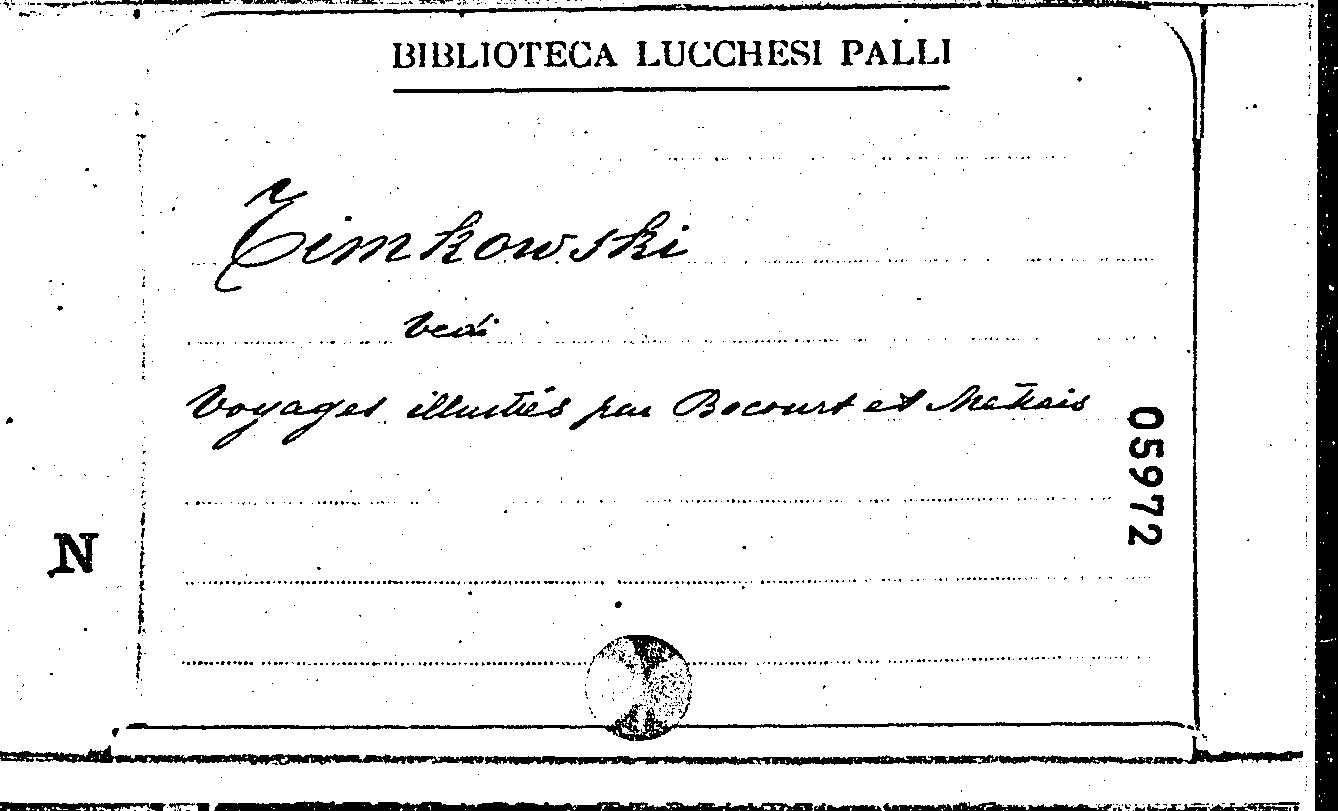 BIBLIOTECA LUCCHESI PALLI
Timkowski
Vedi
Voyages illustrés par Bocourt et Mettais
05972
N